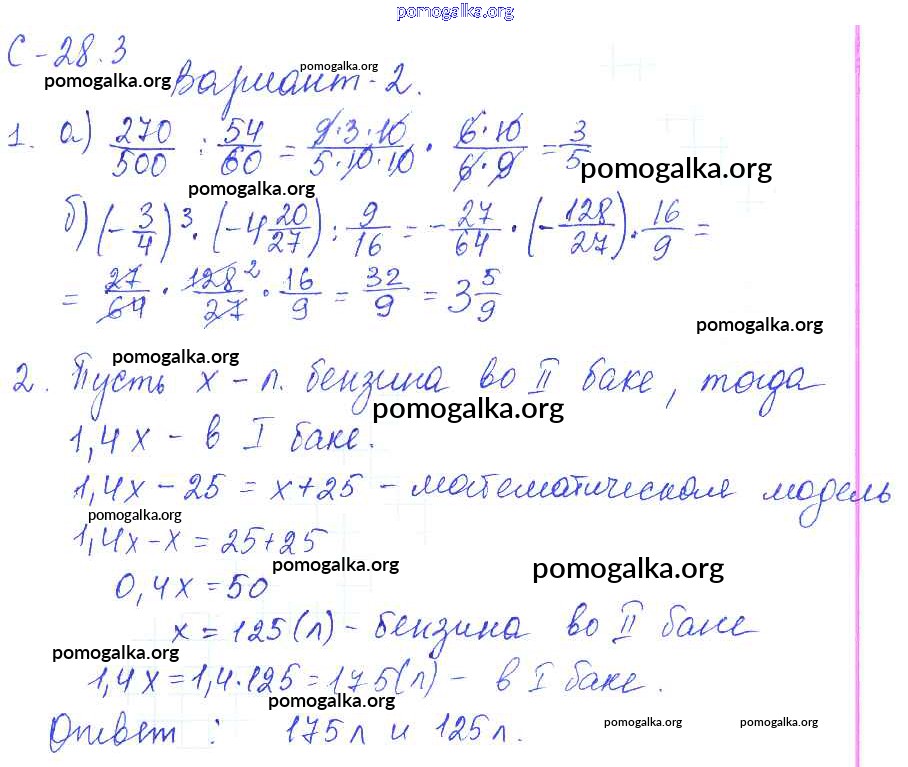 pomogalka.org
С-28.3
pomogalka.org pomogalka.org
Вариант-2.
1. а) 270/500 : 54/60 = 9·3·10/5·10·10 · 6·10/6·9 = 3/5
pomogalka.org
pomogalka.org
б) (-3/4)³ · (-4 20/27) : 9/16 = -27/64 · (-128/27) · 16/9 =
= 27/64 · 128²/27 · 16/9 = 32/9 = 3 5/9
pomogalka.org
pomogalka.org
2. Пусть х - л. бензина во II баке, тогда
pomogalka.org
1,4х - в I баке.
1,4х - 25 = х+25 - математическая модель
pomogalka.org
1,4х-х = 25+25
pomogalka.org pomogalka.org
0,4х = 50
х = 125(л) - бензина во II баке
pomogalka.org
1,4х = 1,4·125 = 175(л) - в I баке.
pomogalka.org
Ответ : 175л и 125л.
pomogalka.org pomogalka.org